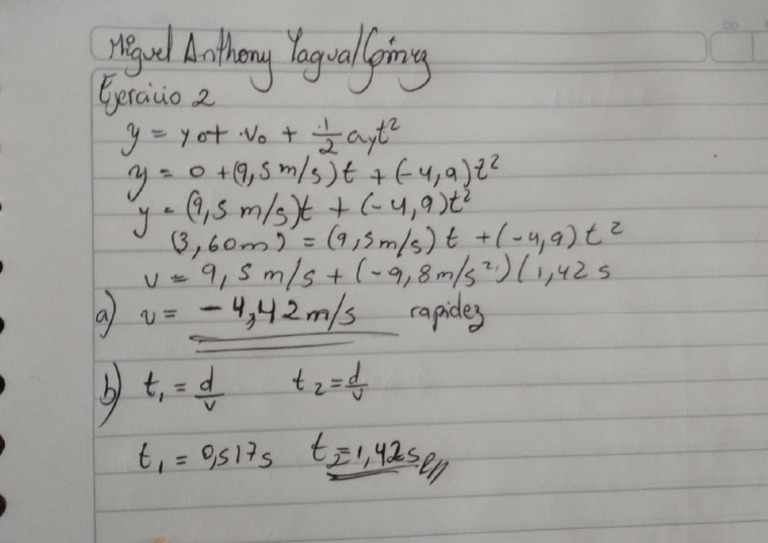 Miguel Anthony Yagual Gómez
Ejercicio 2
y = yot · v₀ + 1/2 ayt²
y = 0 + (9,5 m/s) t + (-4,9) t²
y = (9,5 m/s)t + (-4,9)t²
(3,60m) = (9,5m/s) t + (-4,9) t²
v = 9,5 m/s + (-9,8m/s²) (1,42 s
a) v = -4,42 m/s rapidez
b) t₁ = d/v t₂ = d/v
t₁ = 0,517s t₂ = 1,42s